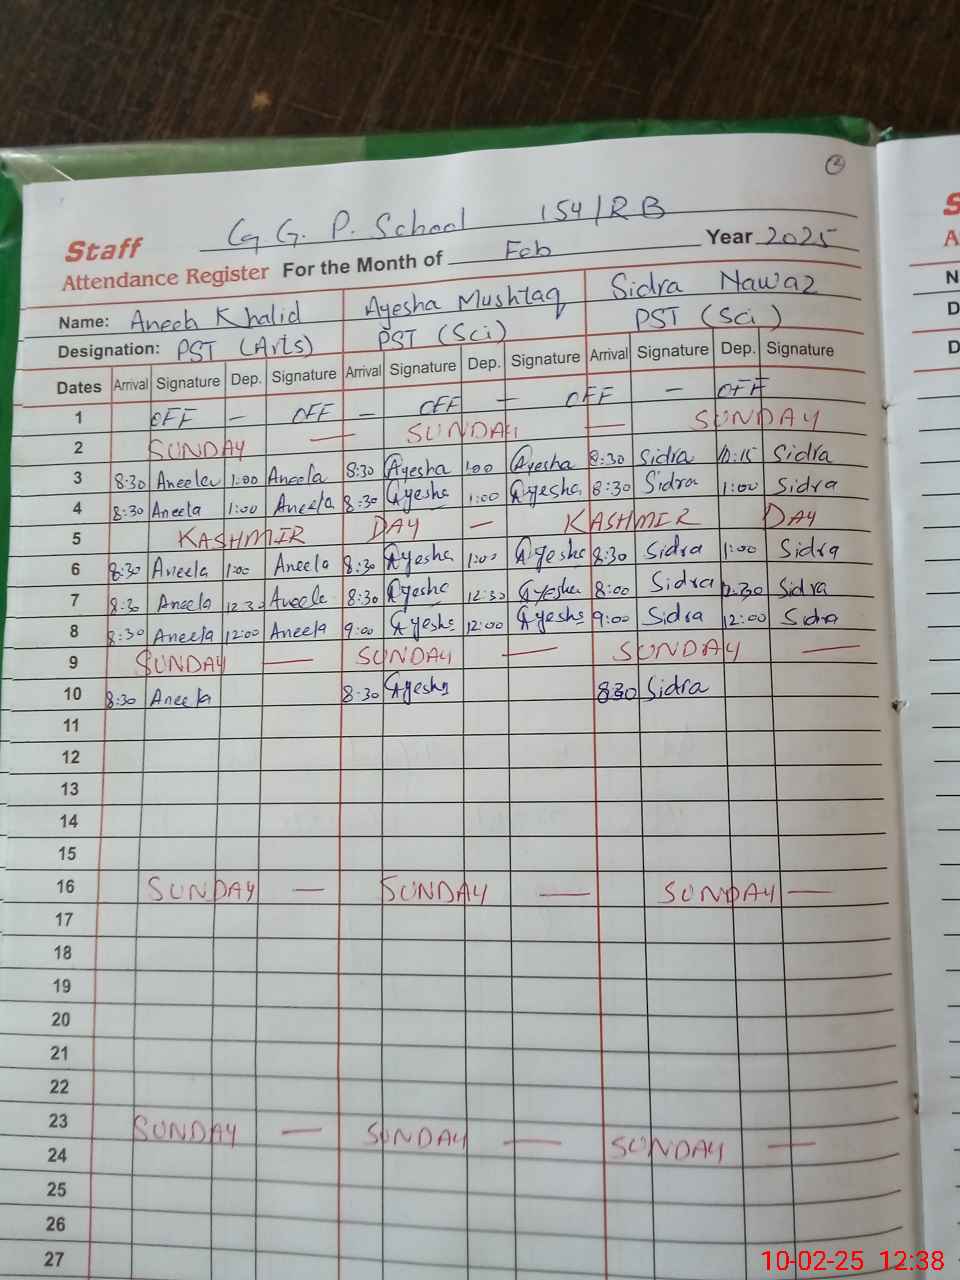 2
G. G. P. School 154/RB
Staff
Attendance Register For the Month of Feb Year 2025
Name: Aneela Khalid Ayesha Mushtaq Sidra Nawaz
Designation: PST (Arts) PST (Sci) PST (Sci)
Dates Arrival Signature Dep. Signature Arrival Signature Dep. Signature Arrival Signature Dep. Signature
1 OFF — OFF — OFF — OFF — OFF
2 SUNDAY — SUNDAY — SUNDAY
3 8:30 Aneela 1:00 Aneela 8:30 Ayesha 1:00 Ayesha 8:30 Sidra Sidra
4 8:30 Aneela 1:00 Aneela 8:30 Ayesha 1:00 Ayesha 8:30 Sidra 1:00 Sidra
5 KASHMIR DAY — KASHMIR DAY
6 8:30 Aneela 1:00 Aneela 8:30 Ayesha 1:00 Ayesha 8:30 Sidra 1:00 Sidra
7 8:30 Aneela 12:30 Aneela 8:30 Ayesha 12:30 Ayesha 8:00 Sidra 12:30 Sidra
8 8:30 Aneela 12:00 Aneela 9:00 Ayesha 12:00 Ayesha 9:00 Sidra 12:00 Sidra
9 SUNDAY — SUNDAY — SUNDAY —
10 8:30 Aneela 8:30 Ayesha 8:30 Sidra
11
12
13
14
15
16 SUNDAY — SUNDAY — SUNDAY —
17
18
19
20
21
22
23 SUNDAY — SUNDAY — SUNDAY —
24
25
26
27
S
A
N
D
D
10-02-25 12:38